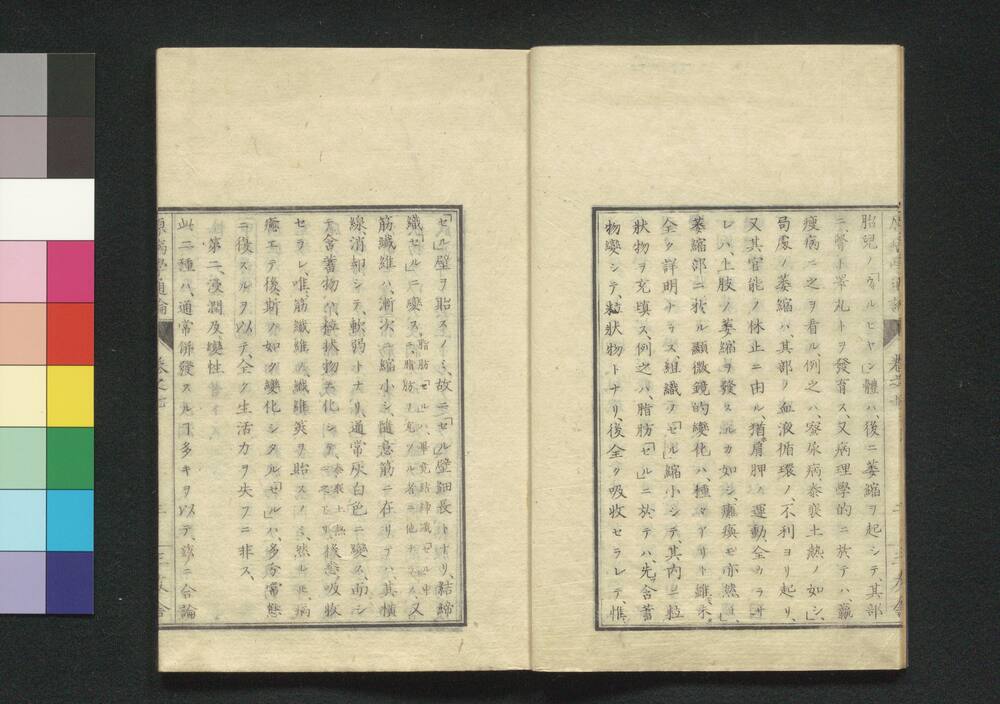 胎兒ノ「ウルヒヤン」體ハ、後ニ萎縮ヲ起シテ、其部
ニ、腎ト睪丸トヲ發育ス、又病理學的ニ於テハ、羸
瘦病ニ之ヲ看ル、例之ハ、窒扶斯、麻刺里亞熱ノ如シ、
局處ノ萎縮ハ、其部ノ血液循環ノ、不利ヨリ起リ、
又其官能ノ休止ニ由ル、猶肩胛ノ運動全カラサ
レハ、上肢ノ萎縮ヲ發スルカ如シ、癱瘓モ亦然リ、
萎縮部ニ於ル顯微鏡的變化ハ、種々アリト雖、未
全ク詳明ナラス、組織ヲ「セル」縮小シテ、其内ニ粒
狀物ヲ充塡ス、例之ハ、脂肪「セル」ニ於テハ、先含蓄
物變シテ、粒狀物トナリ、後全ク吸收セラレテ、惟
「セル」壁ヲ貽スノミ、故ニ「セル」壁細長トナリ、結締
織「セル」ニ變ス、脂肪「セル」ハ、畢竟結締織「セル」中
ニ、脂肪ヲ充ツル者ニ他ナラス、又
筋纖維ハ、漸次ニ縮小シ、隨意筋ニ在リテハ、其橫
線消却シテ、軟弱トナリ、通常灰白色ニ變ス、而シ
テ含蓄物ハ、粒狀物ニ化シテ、後悉吸收
セラレ、唯筋纖維ノ纖維莢ヲ貽スノミ、然レトモ、病
癒エテ後、斯ノ如ク變化シタル「セル」ハ、多分常態
ニ復スルヲ以テ、全ク生活力ヲ失フニ非ス、
第二、浸潤及變性
此二種ハ、通常併發スルヿ多キヲ以テ、玆ニ合論
原病學通論
卷之七